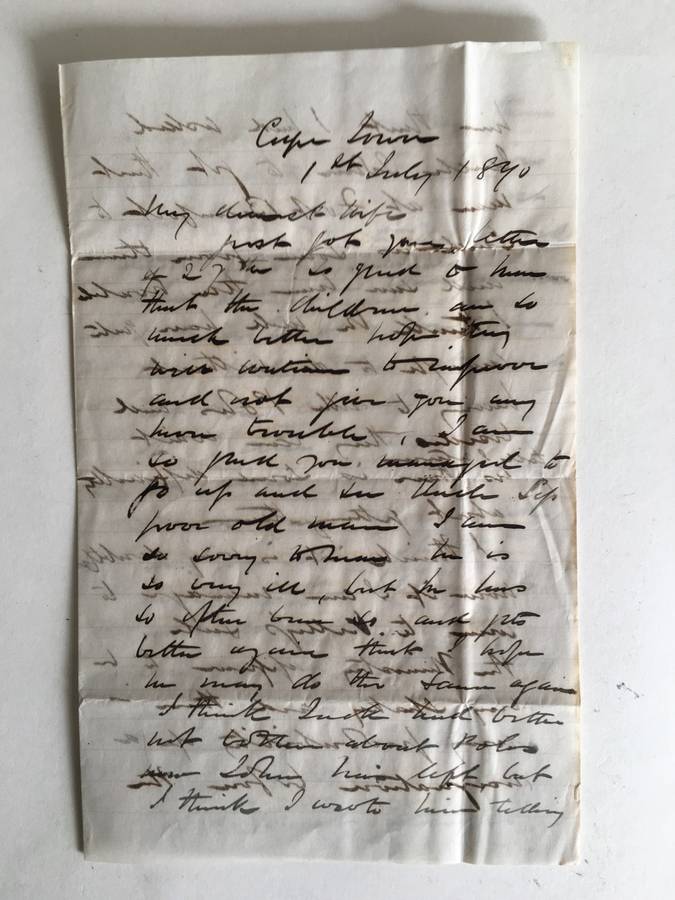 Cape Town
1st July 1890
My dearest Wife
just got your letter
of 27th so glad to hear
that the children are so
much better hope they
will continue to improve
and not give you any
more trouble, I am
so glad you managed to
go up and see Uncle Sep
poor old man I am
so sorry to hear he is
so very ill, but he has
so often been so and gets
better again that I hope
he may do the same again
I think had better
not bother about
now John has left but
I think I wrote him telling